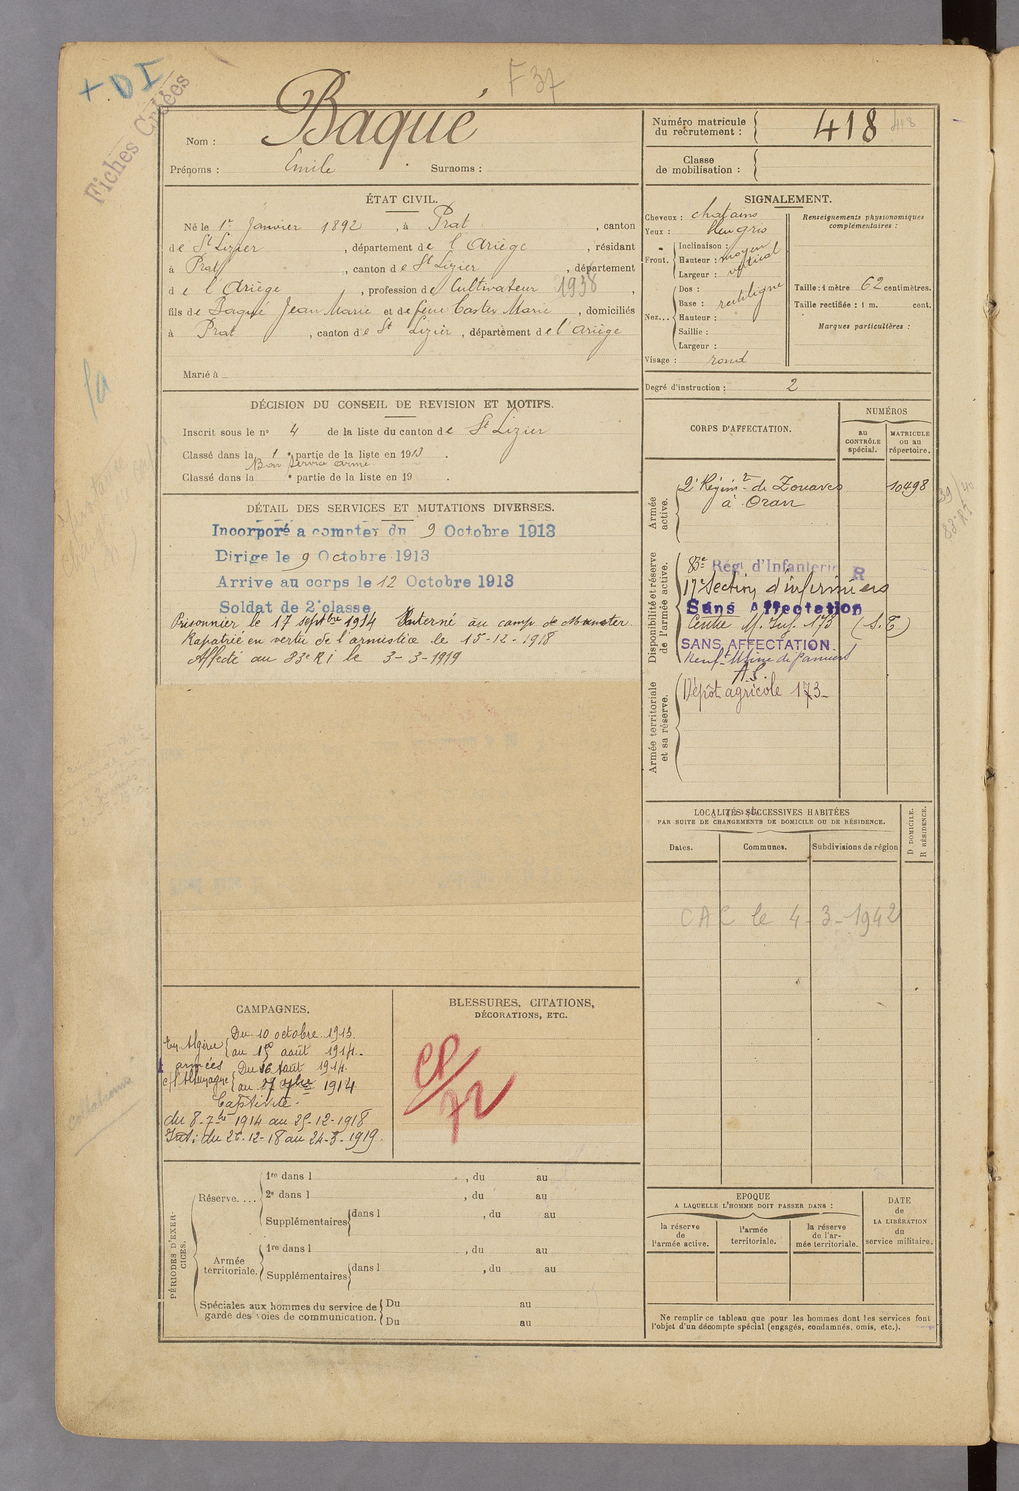 + DI
Fiches Créées
F 37
Nom : Baqué
Prénoms : Emile Surnoms :
Numéro matricule du recrutement : 418 418
Classe de mobilisation :
ÉTAT CIVIL.
Né le 1er Janvier 1892, à Prat, canton
de St Lizier, département de l'Ariège, résidant
à Prat, canton de St Lizier, département
de l'Ariège, profession de Cultivateur 1938,
fils de Baqué Jean Marie et de feue Castex Marie, domiciliés
à Prat, canton de St Lizier, département de l'Ariège
Marié à
SIGNALEMENT.
Cheveux : chatains
Yeux : bleu gris
Front. Inclinaison : moyen
Hauteur :
Largeur : vertical
Nez... Dos : rectiligne
Base :
Hauteur :
Saillie :
Largeur :
Visage : rond
Renseignements physionomiques complémentaires :
Taille : 1 mètre 62 centimètres.
Taille rectifiée : 1 m. cent.
Marques particulières :
Degré d'instruction : 2
DÉCISION DU CONSEIL DE REVISION ET MOTIFS.
Inscrit sous le n° 4 de la liste du canton de St Lizier
Classé dans la 1e partie de la liste en 1913.
Bon service armé
Classé dans la e partie de la liste en 19 .
DÉTAIL DES SERVICES ET MUTATIONS DIVERSES.
Incorporé a compter du 9 Octobre 1913
Dirigé le 9 Octobre 1913
Arrive au corps le 12 Octobre 1913
Soldat de 2e classe
Prisonnier le 17 septbre 1914 Interné au camp de Munster
Rapatrié en vertu de l'armistice le 15-12-1918
Affecté au 83e RI le 3-3-1919
CORPS D'AFFECTATION.
NUMÉROS
au CONTRÔLE spécial.
MATRICULE ou au répertoire.
Armée active.
2e Régimt de Zouaves 10498
à Oran
Disponibilité et réserve de l'armée active.
83e Régt d'Infanterie R
17e Section d'infirmiers
Sans Affectation
Centre M. Inf. 173 (S.E)
SANS AFFECTATION.
A.S.
Armée territoriale et sa réserve.
Dépôt agricole 173
LOCALITÉS SUCCESSIVES HABITÉES
PAR SUITE DE CHANGEMENTS DE DOMICILE OU DE RÉSIDENCE.
Dates. Communes. Subdivisions de région
D DOMICILE.
R RÉSIDENCE.
CAC le 4-3-1942
CAMPAGNES.
En Algérie Du 10 octobre 1913
au 15 août 1914
armées Du 16 Août 1914
c/ l'Allemagne au 7 7bre 1914
Captivité.
du 8-7bre 1914 au 25-12-1918
Int: du 26-12-18 au 24-3-1919.
BLESSURES, CITATIONS,
DÉCORATIONS, ETC.
CP/72
PÉRIODES D'EXERCICES.
Réserve.... 1re dans l , du au
2e dans l , du au
Supplémentaires dans l , du au
Armée territoriale. 1re dans l , du au
Supplémentaires dans l , du au
Spéciales aux hommes du service de garde des voies de communication. Du au
Du au
EPOQUE
A LAQUELLE L'HOMME DOIT PASSER DANS :
la réserve de l'armée active.
l'armée territoriale.
la réserve de l'armée territoriale.
DATE de LA LIBÉRATION du service militaire.
Ne remplir ce tableau que pour les hommes dont les services font
l'objet d'un décompte spécial (engagés, condamnés, omis, etc.).